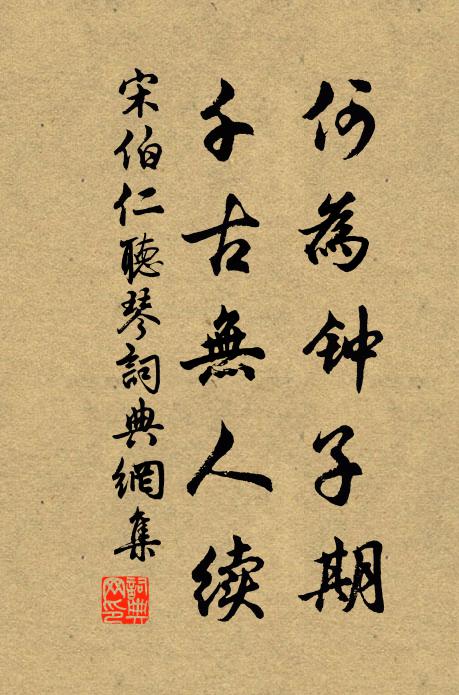 何為钟子期
千古無人续
宋伯仁聽琴詞典網集
詞典網印